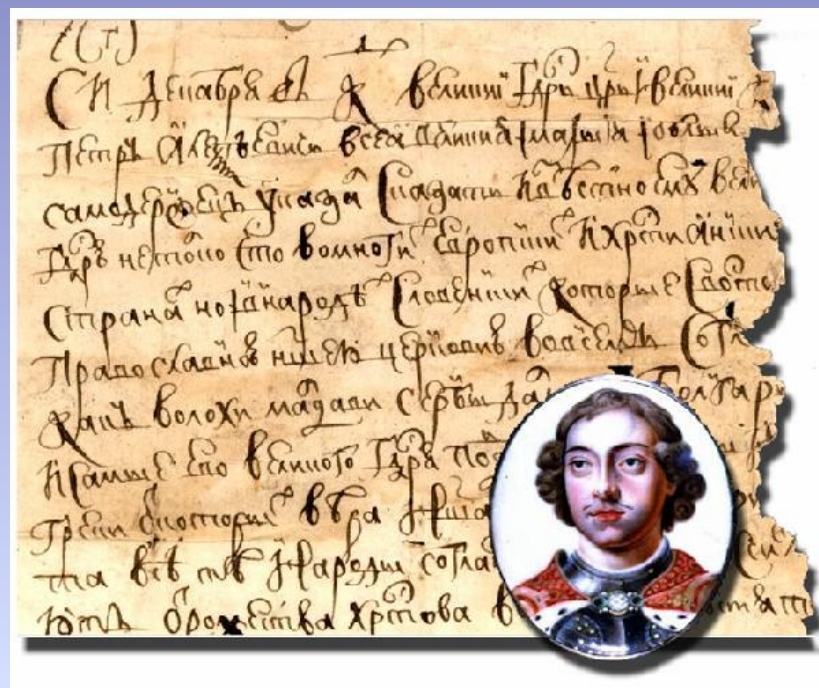 декабря въ К великиі гдрь црь і великиі
Петръ Алеѯѣевичь всеа великия і малыя і бѣлыя
самодержецъ указал сказать извѣстно ему вели
гдрю не толко что во многих европских христианских
странах но і в народѣх словенских которые с восто
православною нашею церковию во всемъ согла
какъ волохи молдавы сербы дал болгары
и самые его великого гдря под
греки от которых вѣра наша
та всѣ тѣ народы согла
ютъ от рожества христова в